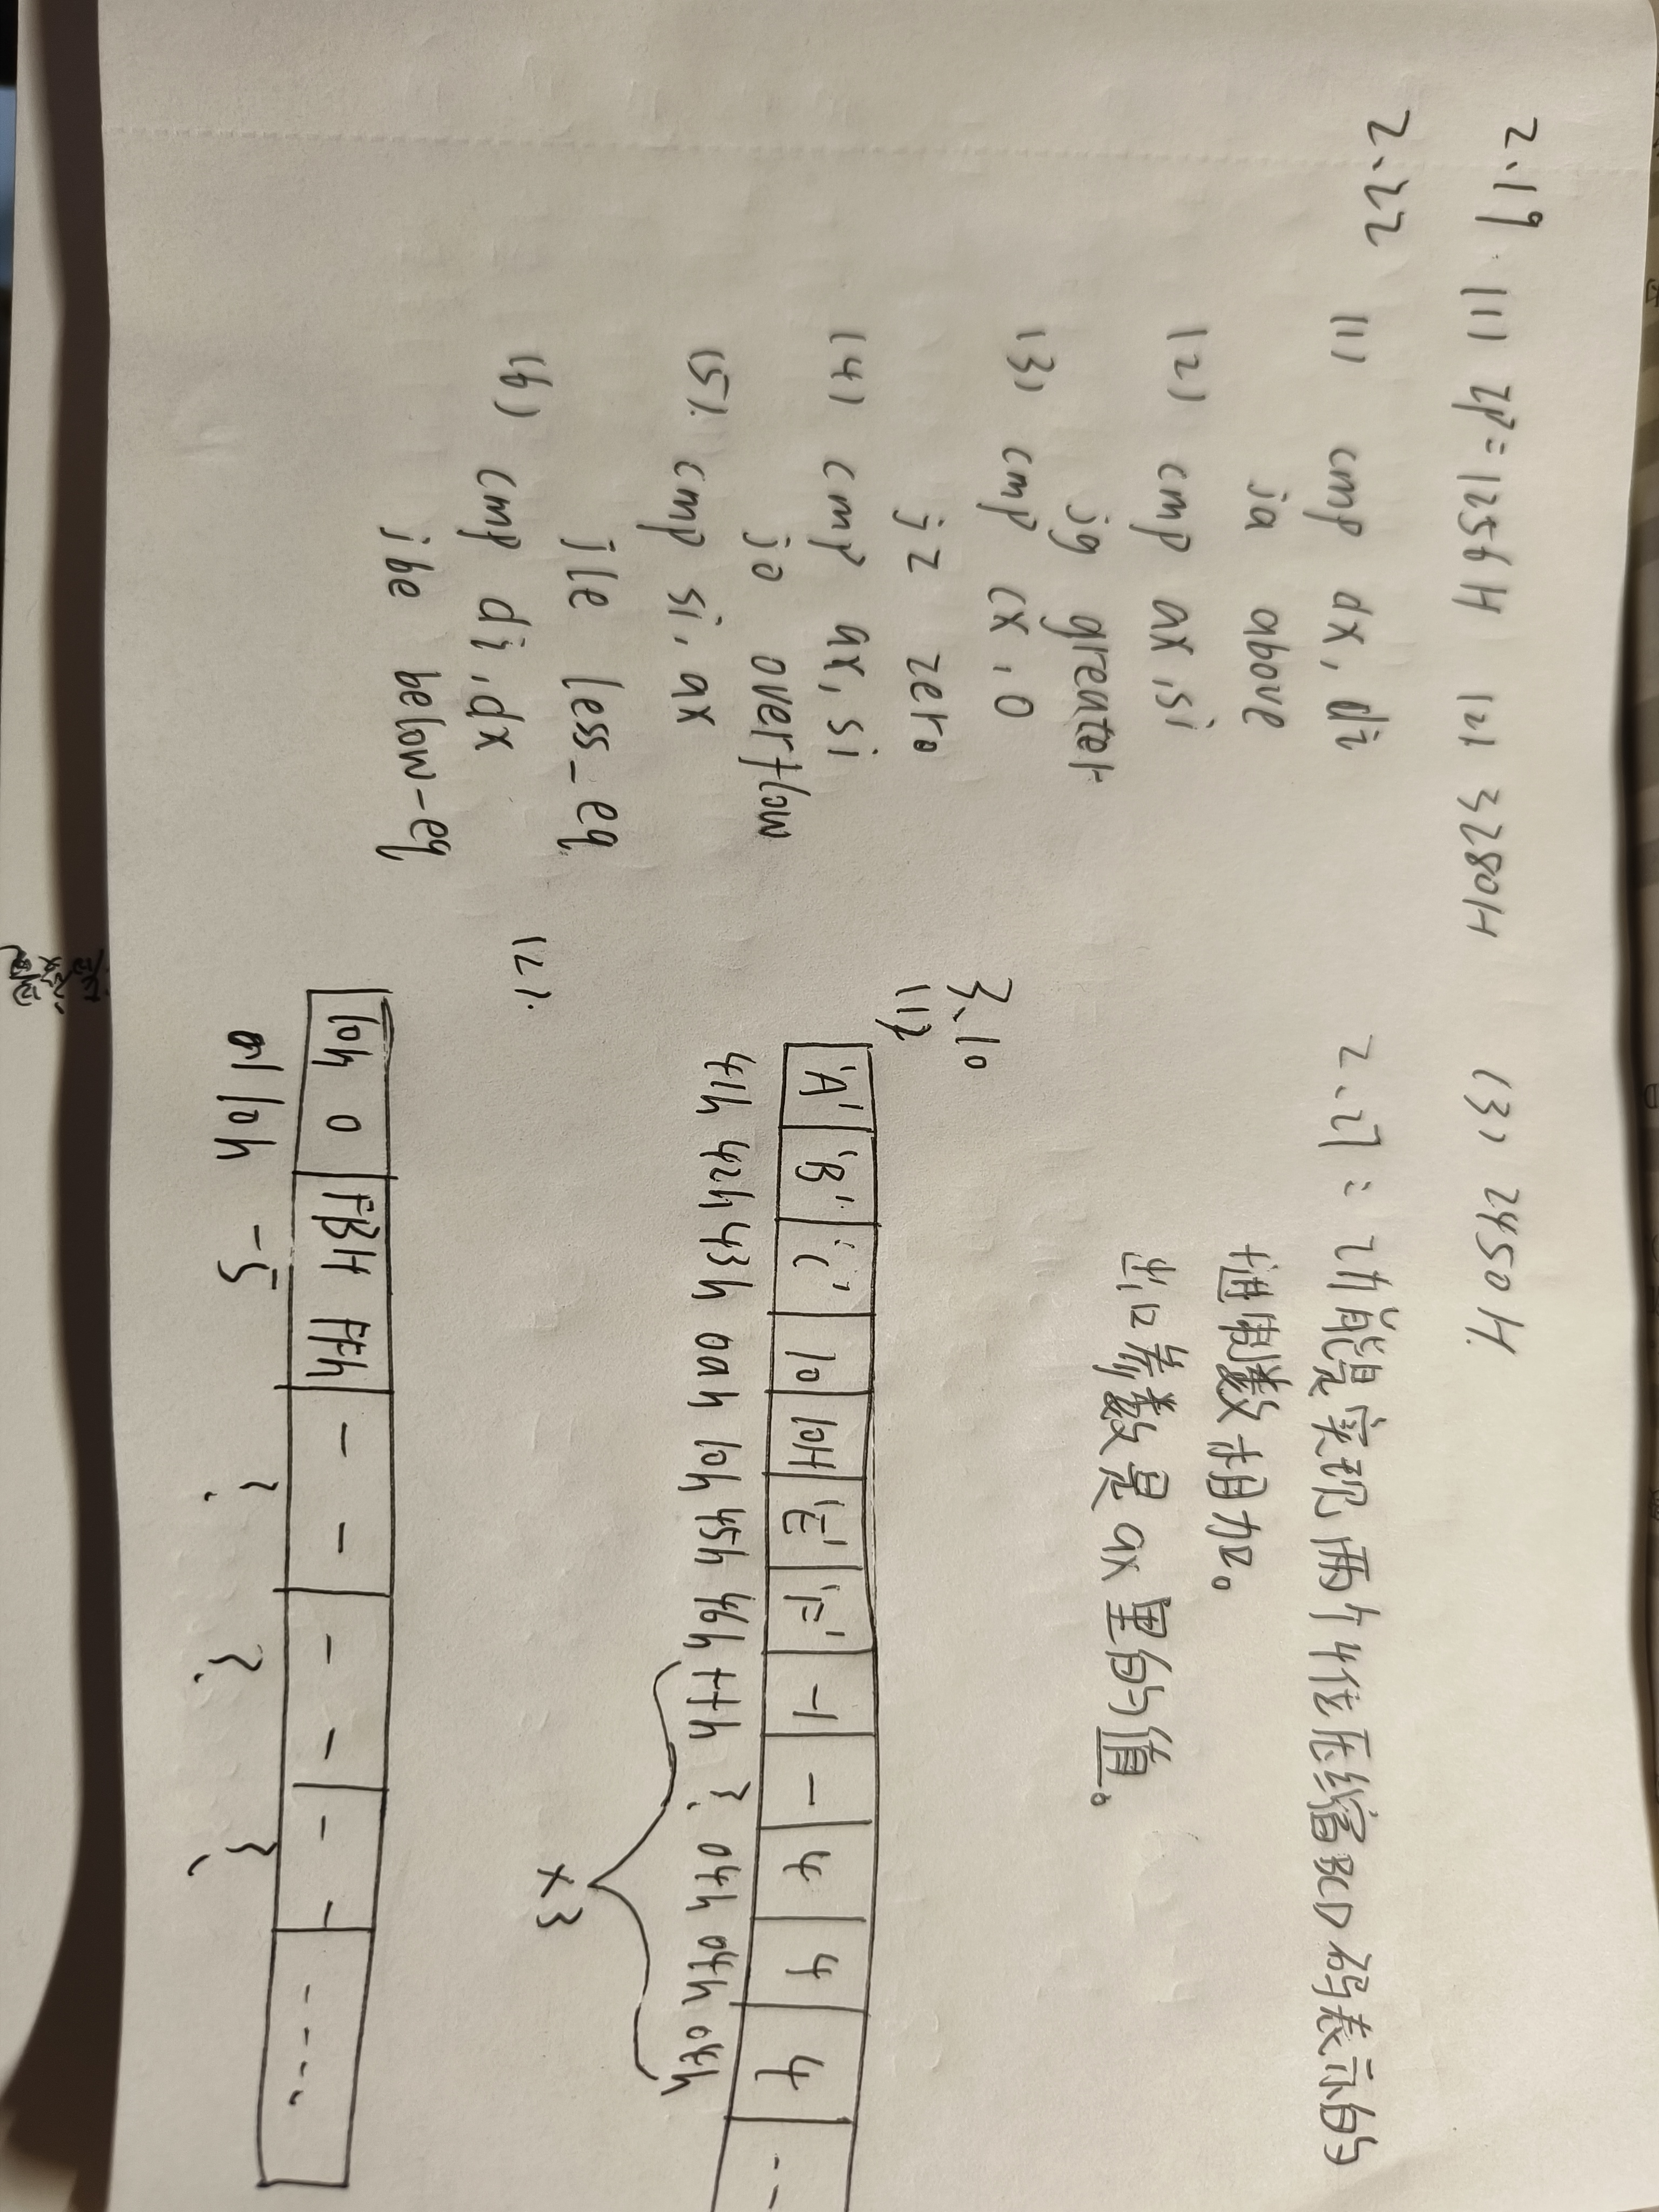 2.19 (1) ZP=1256H (2) 3280H (3) 2450H
2.22 (1) cmp dx, di
ja above
(2) cmp ax, si
jg greater
(3) cmp cx, 0
jz zero
(4) cmp ax, si
jo overflow
(5) cmp si, ax
jle less_eq
(6) cmp di, dx
jbe below-eq
2.27: 功能是实现两个4位压缩BCD码表示的
十进制数相加。
出口参数是ax里的值。
3.10
(1)
'A' 'B' 'C' 10 10H 'E' 'F' -1 - 4 4 4 --
41h 42h 43h 0ah 10h 45h 46h ffh ? 04h 04h 04h
×3
(2).
10h 0 FBH FFh - - - - - - ----
10h -5 ? ? ?